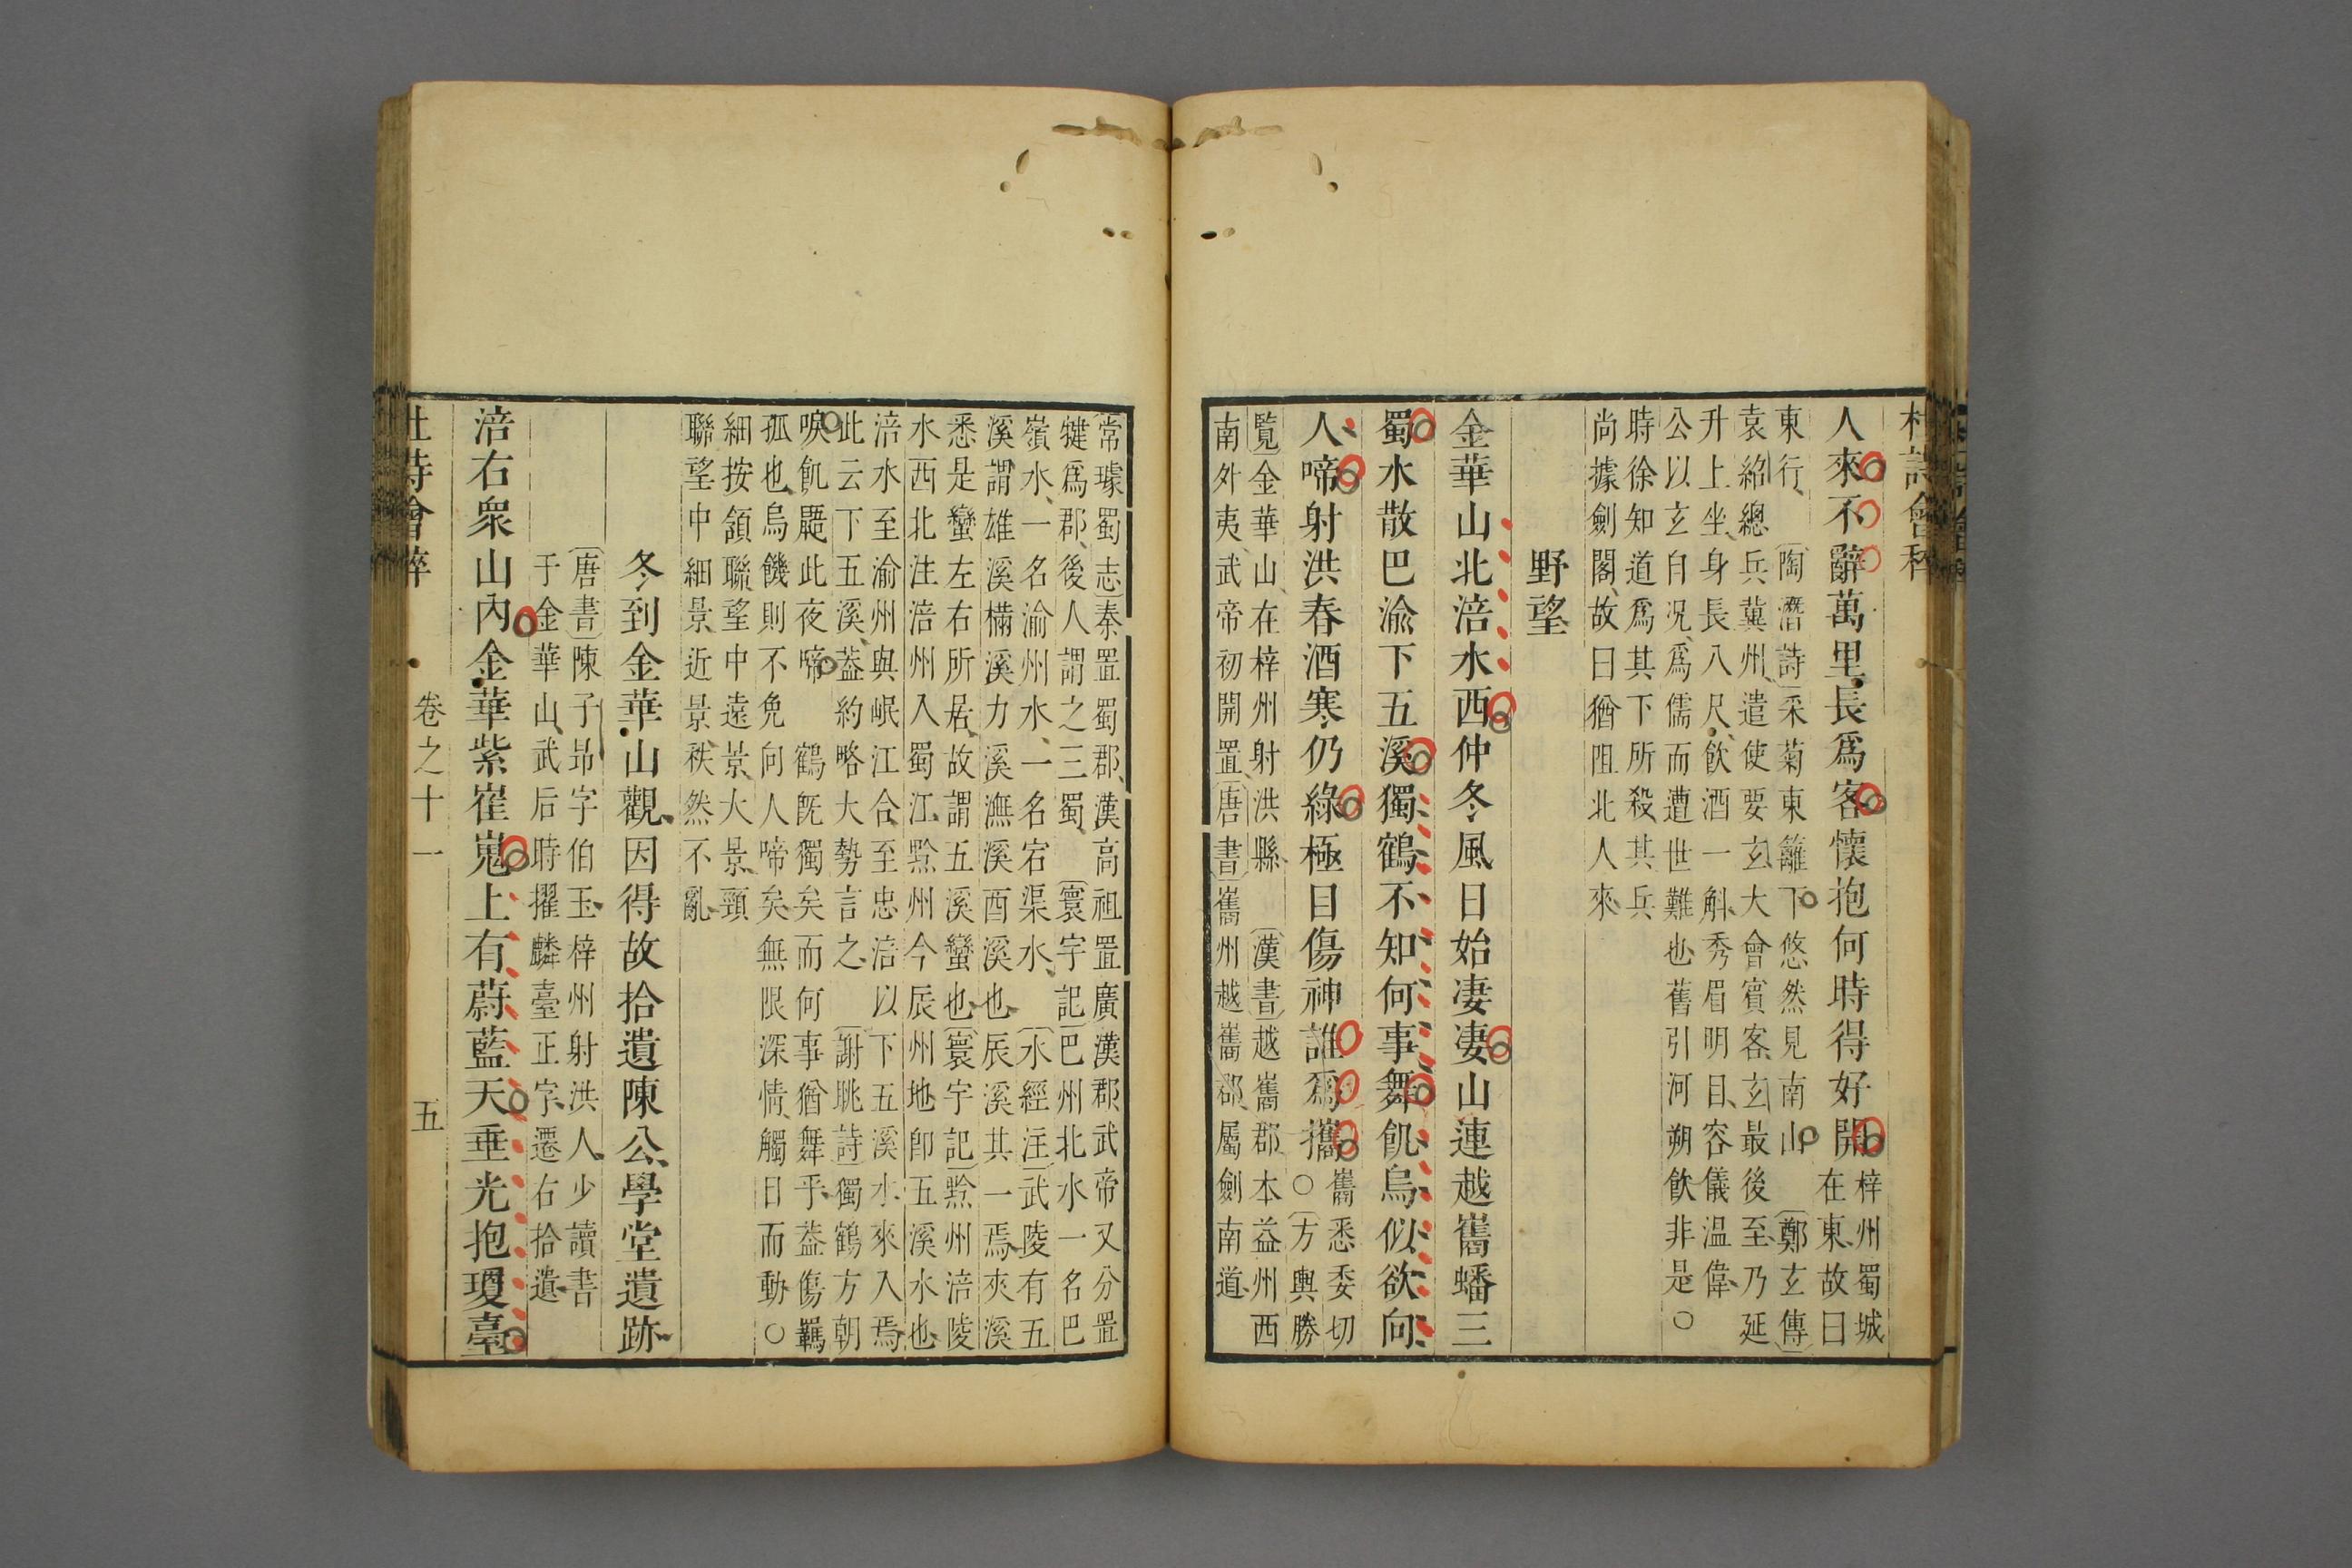 杜詩會稡
人來不辭萬里長爲客懷抱何時得好開
梓州蜀城
在東故曰
東行、〔陶潛詩〕采菊東籬下悠然見南山〔鄭玄傳〕
袁紹總兵冀州遣使要玄大會賓客玄最後至乃延
升上坐身長八尺飲酒一斛秀眉明目容儀温偉
公以玄自况爲儒而遭世難也舊引河朔飲非是○
時徐知道爲其下所殺其兵
尚據劍閣故曰猶阻北人來
野望
金華山北涪水西仲冬風日始凄凄山連越巂蟠三
蜀水散巴渝下五溪獨鶴不知何事舞飢烏似欲向
人啼射洪春酒寒仍綠極目傷神誰爲攜
巂悉委切
○〔方輿勝
覽〕金華山在梓州射洪縣〔漢書〕越巂郡本益州西
南外夷武帝初開置〔唐書〕巂州越巂郡屬劍南道
常璩蜀志〕秦置蜀郡漢高祖置廣漢郡武帝又分置
犍爲郡後人謂之三蜀〔寰宇記〕巴州北水一名巴
嶺水一名渝州水一名宕渠水〔水經注〕武陵有五
溪謂雄溪樠溪力溪潕溪酉溪也辰溪其一焉夾溪
悉是蠻左右所居故謂五溪蠻也〔寰宇記〕黔州涪陵
水西北注涪州入蜀江黔州今辰州地卽五溪水也
涪水至渝州與岷江合至忠涪以下五溪水來入焉
此云下五溪葢約略大勢言之〔謝朓詩〕獨鶴方朝
唳飢鼯此夜啼　鶴旣獨矣而何事猶舞乎葢傷羈
孤也烏饑則不免向人啼矣無限深情觸目而動○
細按頷聯望中遠景大景頸
聯望中細景近景秩然不亂
冬到金華山觀因得故拾遺陳公學堂遺跡
〔唐書〕陳子昻字伯玉梓州射洪人少讀書
于金華山武后時擢麟臺正字遷右拾遺
涪右衆山內金華紫崔嵬上有蔚藍天垂光抱瓊臺
杜詩會稡　卷之十一　五